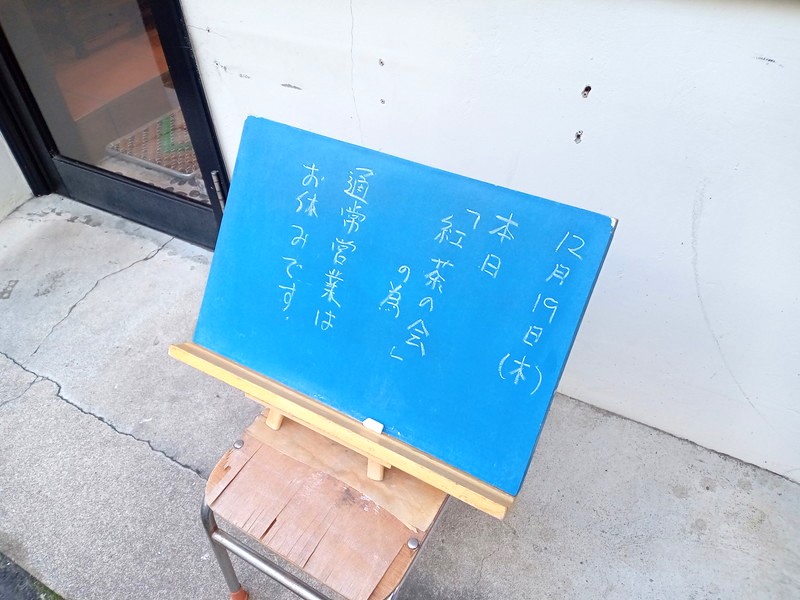 12月19日(木)
本日
「紅茶の会」
の為
通常営業は
お休みです.